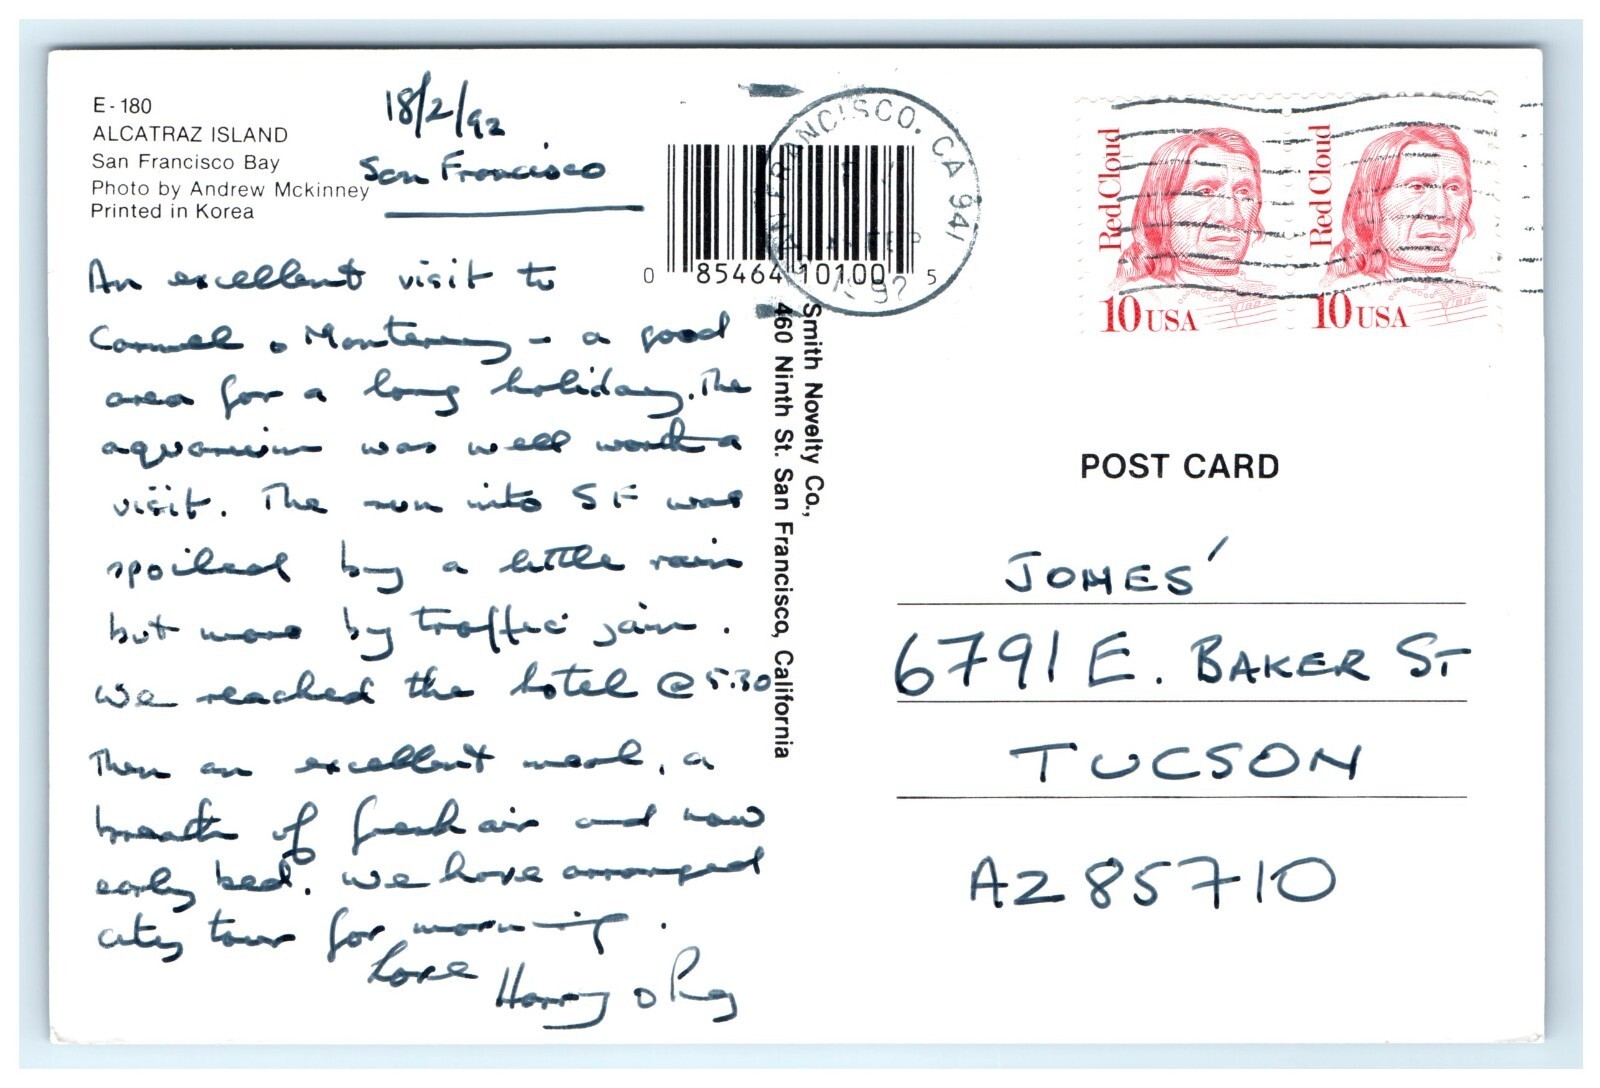 E-180
ALCATRAZ ISLAND
San Francisco Bay
Photo by Andrew Mckinney
Printed in Korea
18/2/92
San Francisco
An excellent visit to
Carmel & Monterey - a good
area for a long holiday. The
aquarium was well worth a
visit. The run into SF was
spoiled by a little rain
but more by traffic jam.
We reached the hotel @ 5.30
Then an excellent meal, a
breath of fresh air and now
early bed. We have arranged
city tour for morning.
Love
Harry & Reg
0 85464 10100 5
SAN FRANCISCO, CA 941
FEB
1992
Smith Novelty Co.,
460 Ninth St. San Francisco, California
Red Cloud
10 USA
Red Cloud
10 USA
POST CARD
JONES'
6791 E. BAKER ST
TUCSON
AZ 85710